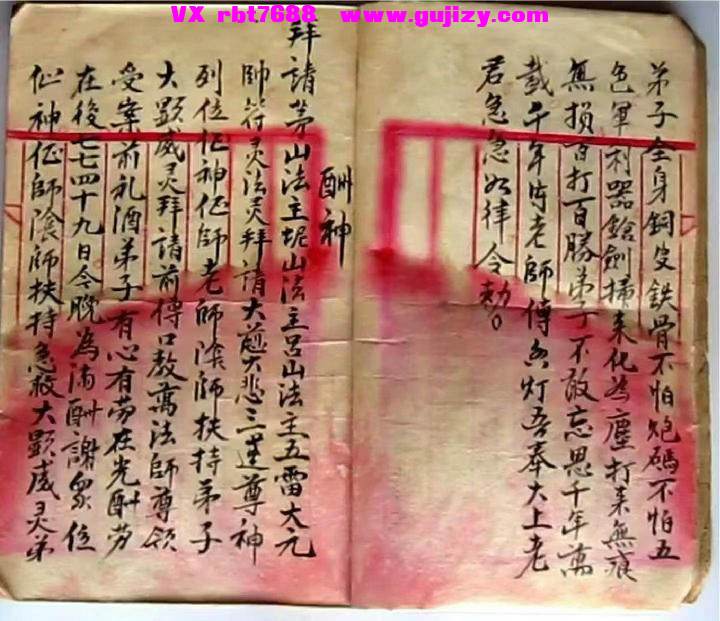 VX rbt7688 www.gujizy.com
弟子全身銅皮鉄骨不怕炮碼不怕五
色軍利器鎗劍掃来化為塵打来無痕
無損百打百勝弟子不敢忘恩千年萬
載千年時老師傅香灯吾奉大上老
君急急如律令勅。
酬神
拜請茅山法主坭山法主吕山法主五雷大元
帥符灵法灵拜請大慈大悲三蓮尊神
列位仙神仙師老師陰師扶持弟子
大顕威灵拜請前傳口教萬法師尊領
受案前礼酒弟子有心有劳在先酬劳
在後七七四十九日今晚為滿酬謝眾位
仙神仙師陰師扶持急救大顕威灵弟